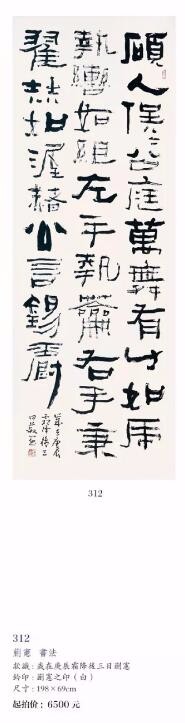 碩人俁〻公庭萬舞有力如虎
執轡如組左手執籥右手秉
翟赫如渥赭公言錫爵
歲在庚辰
霜降後三
日蒯憲
312
312
蒯憲 書法
款識：歲在庚辰霜降後三日蒯憲
鈐印：蒯憲之印（白）
尺寸：198×69cm
起拍价：6500 元